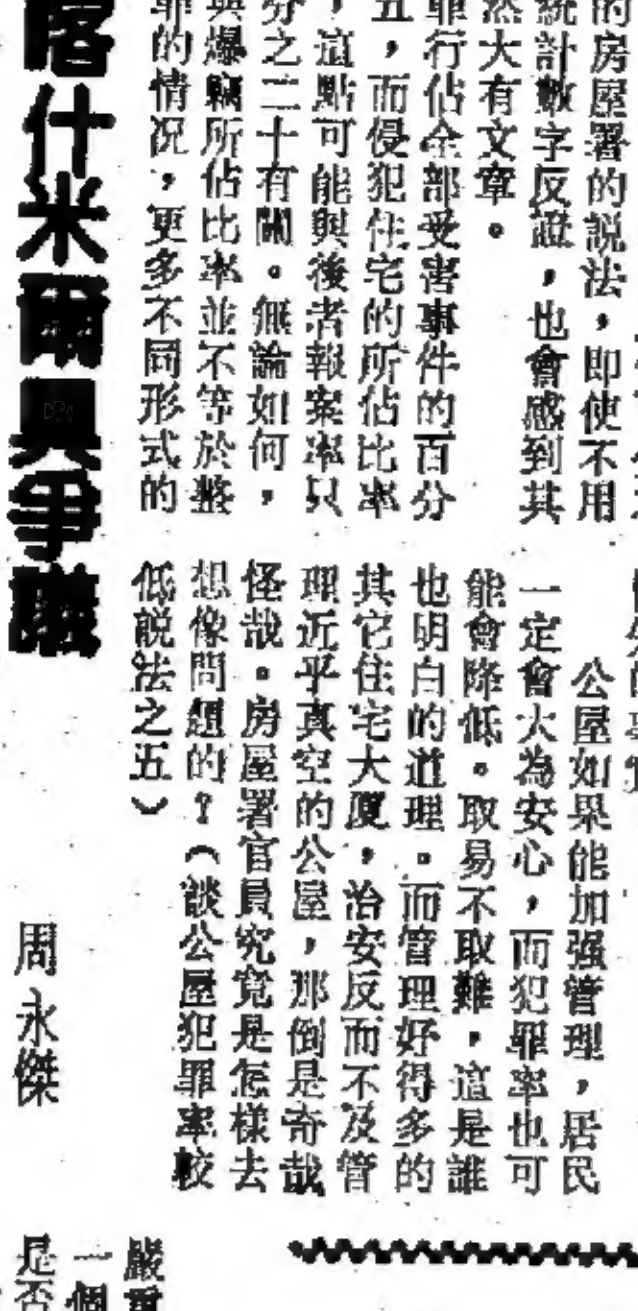 的房屋署的説法，即使不用
統計數字反證，也會感到其
然大有文章。
罪行佔全部受害事件的百分
五，而侵犯住宅的所佔比率
，這點可能與後者報案率只
分之二十有關。無論如何，
與爆竊所佔比率並不等於整
罪的情況，更多不同形式的
公屋如果能加强管理，居民
一定會大為安心，而犯罪率也可
能會降低。取易不取難，這是誰
也明白的道理。而管理好得多的
其它住宅大厦，治安反而不及管
理近乎真空的公屋，那倒是奇哉
怪哉。房屋署官員究竟是怎樣去
想像問題的？（談公屋犯罪率較
低説法之五）
喀什米爾與爭議
周永傑
嚴重
一個
是否